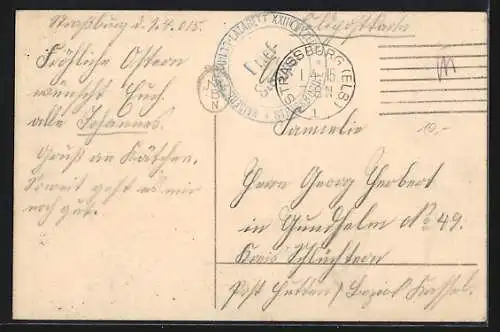 Straßburg d. 1.4.015.
Fröhliche Ostern
wünscht Euch
alle Johannes.
Gruß an Kätchen.
Soweit geht es mir
noch gut.
Feldpostkarte
STRASSBURG (ELS)
Familie
Herrn Georg Herbert
in Gundhelm No 49.
Kreis Schlüchtern
Post Hutten / Bezirk Kassel.
10.-